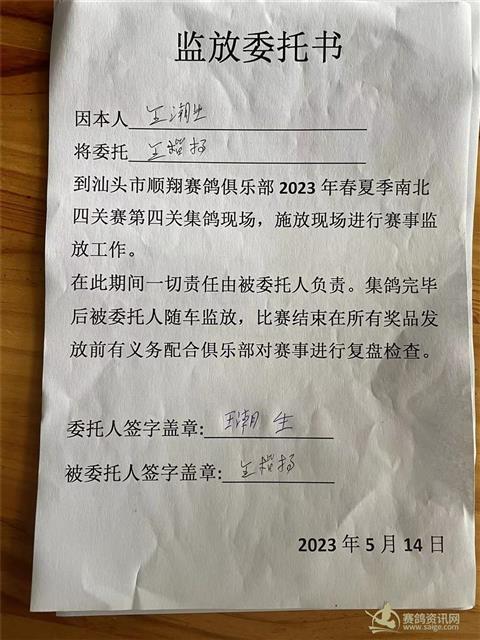 监放委托书
因本人 王潮生
将委托 王楷扬
到汕头市顺翔赛鸽俱乐部 2023 年春夏季南北
四关赛第四关集鸽现场，施放现场进行赛事监
放工作。
在此期间一切责任由被委托人负责。集鸽完毕
后被委托人随车监放，比赛结束在所有奖品发
放前有义务配合俱乐部对赛事进行复盘检查。
委托人签字盖章: 王潮生
被委托人签字盖章: 王楷扬
2023 年 5 月 14 日
赛鸽资讯网
www.saige.com